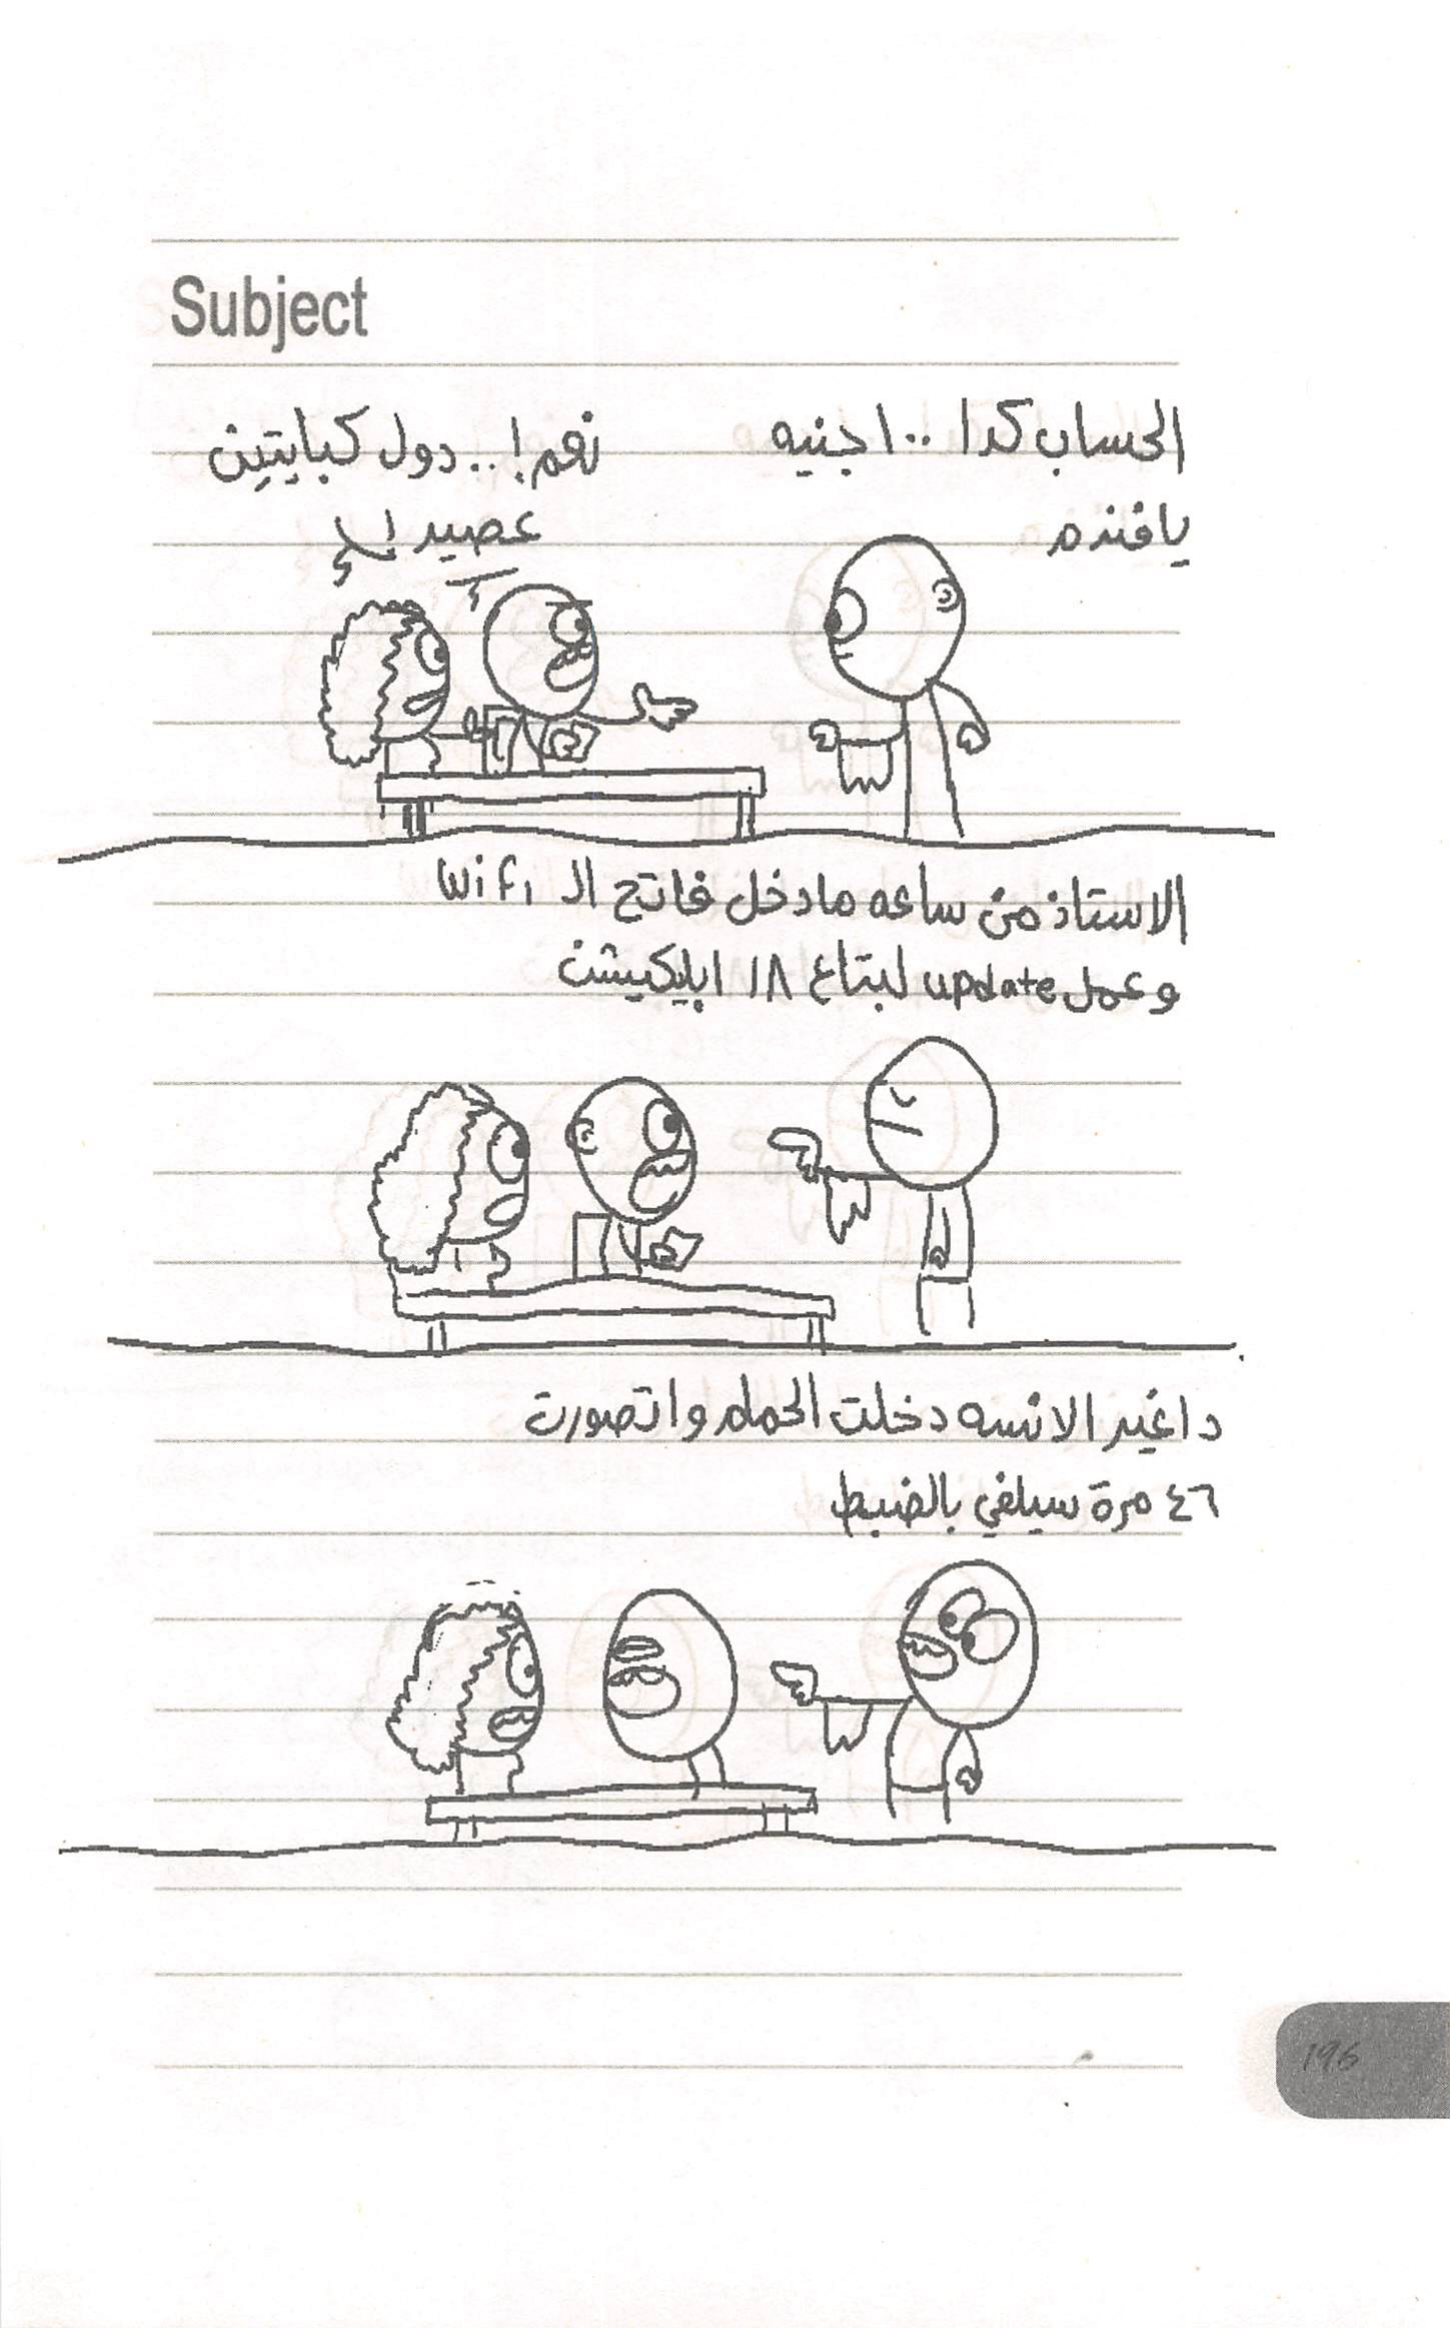 Subject
الحساب كدا ١٠٠ جنيه
يافندم
نعم! .. دول كبايتين
عصير!
الاستاذ من ساعه مادخل فاتح ال wifi
وعمل update لبتاع ١٨ ابليكيشن
داغير الانسه دخلت الحمام واتصورت
٤٦ مرة سيلفي بالضبط
196